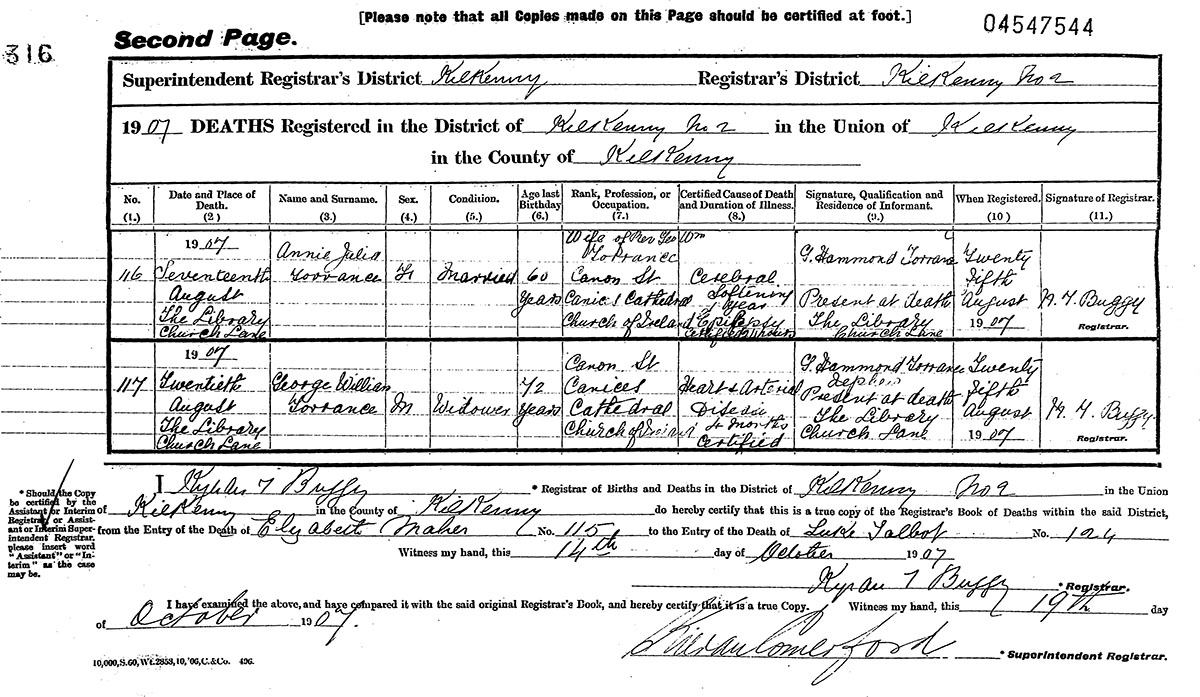 [Please note that all Copies made on this Page should be certified at foot.]
04547544
316
Second Page.
Superintendent Registrar's District Kilkenny Registrar's District Kilkenny No 2
1907 DEATHS Registered in the District of Kilkenny No 2 in the Union of Kilkenny
in the County of Kilkenny
No. (1.)
Date and Place of Death. (2)
Name and Surname. (3.)
Sex. (4.)
Condition. (5.)
Age last Birthday (6.)
Rank, Profession, or Occupation. (7.)
Certified Cause of Death and Duration of Illness. (8.)
Signature, Qualification and Residence of Informant. (9.)
When Registered. (10)
Signature of Registrar. (11.)
116
1907
Seventeenth
August
The Library
Church Lane
Annie Julia
Torrance
F
Married
60
years
Wife of Rev Geo Wm
Torrance
Canon St
Canice's Cathedral
Church of Ireland
Cerebral
Softening
1 year
Epilepsy
Certified
G. Hammond Torrance
Present at death
The Library
Church Lane
Twenty
fifth
August
1907
K. T. Buggy
Registrar.
117
1907
Twentieth
August
The Library
Church Lane
George William
Torrance
M
Widower
72
years
Canon St
Canices
Cathedral
Church of Ireland
Heart & Arterial
Disease
4 months
Certified
G. Hammond Torrance
Nephew
Present at death
The Library
Church Lane
Twenty
fifth
August
1907
K. T. Buggy
Registrar.
* Should the Copy
be certified by the
Assistant or Interim
Registrar or Assist-
ant or Interim Super-
intendent Registrar.
please insert word
"Assistant" or "In-
terim" as the case
may be.
I Kyran T Buggy * Registrar of Births and Deaths in the District of Kilkenny No 2 in the Union
of Kilkenny in the County of Kilkenny do hereby certify that this is a true copy of the Registrar's Book of Deaths within the said District,
from the Entry of the Death of Elizabeth Maher No. 115 to the Entry of the Death of Luke Talbot No. 124
Witness my hand, this 14th day of October 1907
Kyran T Buggy * Registrar.
I have examined the above, and have compared it with the said original Registrar's Book, and hereby certify that it is a true Copy. Witness my hand, this 19th day
of October 1907.
Kieran Comerford * Superintendent Registrar.
10,000,S.60,Wt.2853,10,'06,C.&Co. 496.